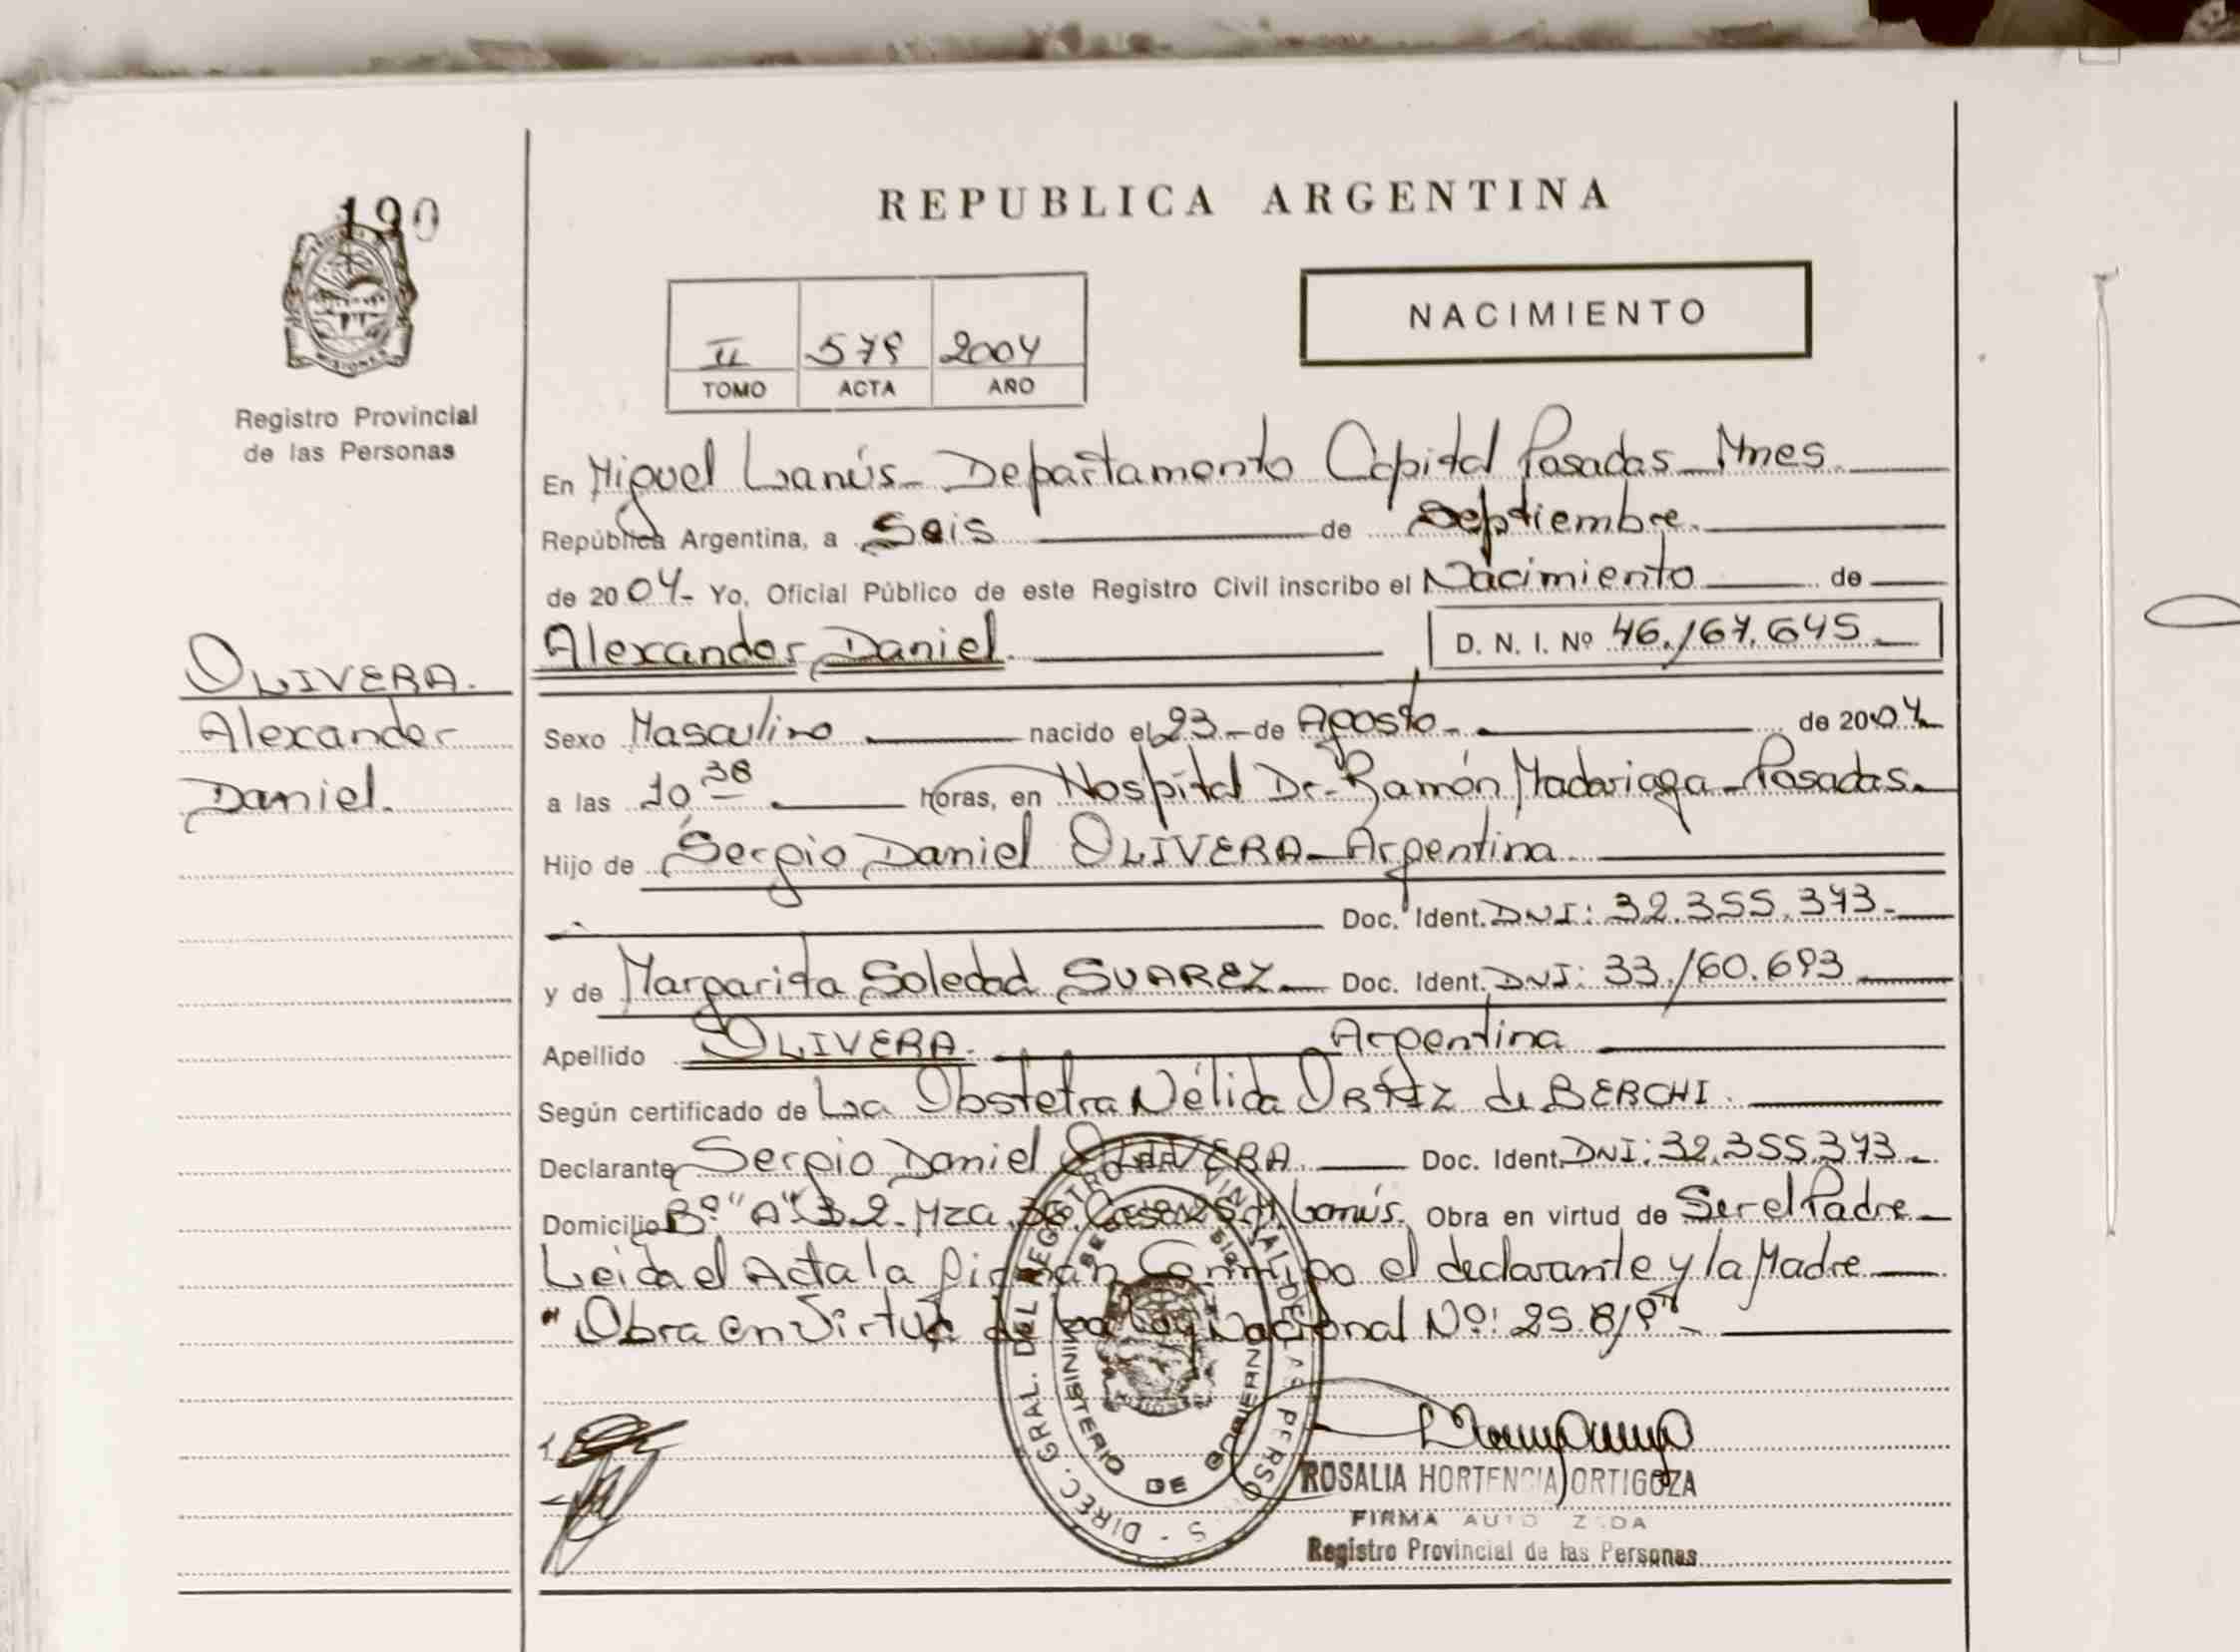 190
REPUBLICA ARGENTINA
NACIMIENTO
II 579 2004
TOMO ACTA AÑO
Registro Provincial
de las Personas
En Miguel Lanús - Departamento Capital Posadas - Mnes.
República Argentina, a Seis de Septiembre.
de 2004- Yo, Oficial Público de este Registro Civil inscribo el Nacimiento de
Alexander Daniel. D. N. I. Nº 46.167.645.-
OLIVERA.
Alexander
Daniel.
Sexo Masculino nacido el 23 - de Agosto - de 2004
a las 10 38 horas, en Hospital Dr. Ramón Madariaga - Posadas.
Hijo de Sergio Daniel OLIVERA - Argentina
Doc. Ident. DNI: 32.355.373.-
y de Margarita Soledad SUAREZ - Doc. Ident. DNI: 33.160.693
Apellido OLIVERA. Argentina
Según certificado de La Obstetra Nélida ORTIZ de BERCHI.
Declarante Sergio Daniel OLIVERA. Doc. Ident. DNI: 32.355.373.-
Domicilio Bº "A" 3.2. Mza. 36. Casa M. Lanús. Obra en virtud de Ser el Padre
Leida el Acta la firman Conmigo el declarante y la Madre
"Obra en Virtud de la Ley Nacional Nº: 25.819"
DIREC. GRAL. DEL REGISTRO PROVINCIAL DE LAS PERSONAS
MINISTERIO DE GOBIERNO
MISIONES
ROSALIA HORTENCIA ORTIGOZA
FIRMA AUTORIZADA
Registro Provincial de las Personas